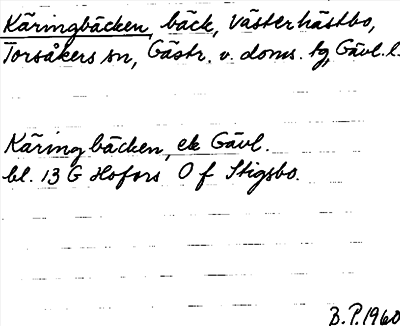 Käringbäcken, bäck, Västerhästbo,
Torsåkers sn, Gästr. v. doms. tg, Gävl. l.
Käringbäcken, ek Gävl.
bl. 13 G Hofors O f Stigsbo.
B.P. 1960